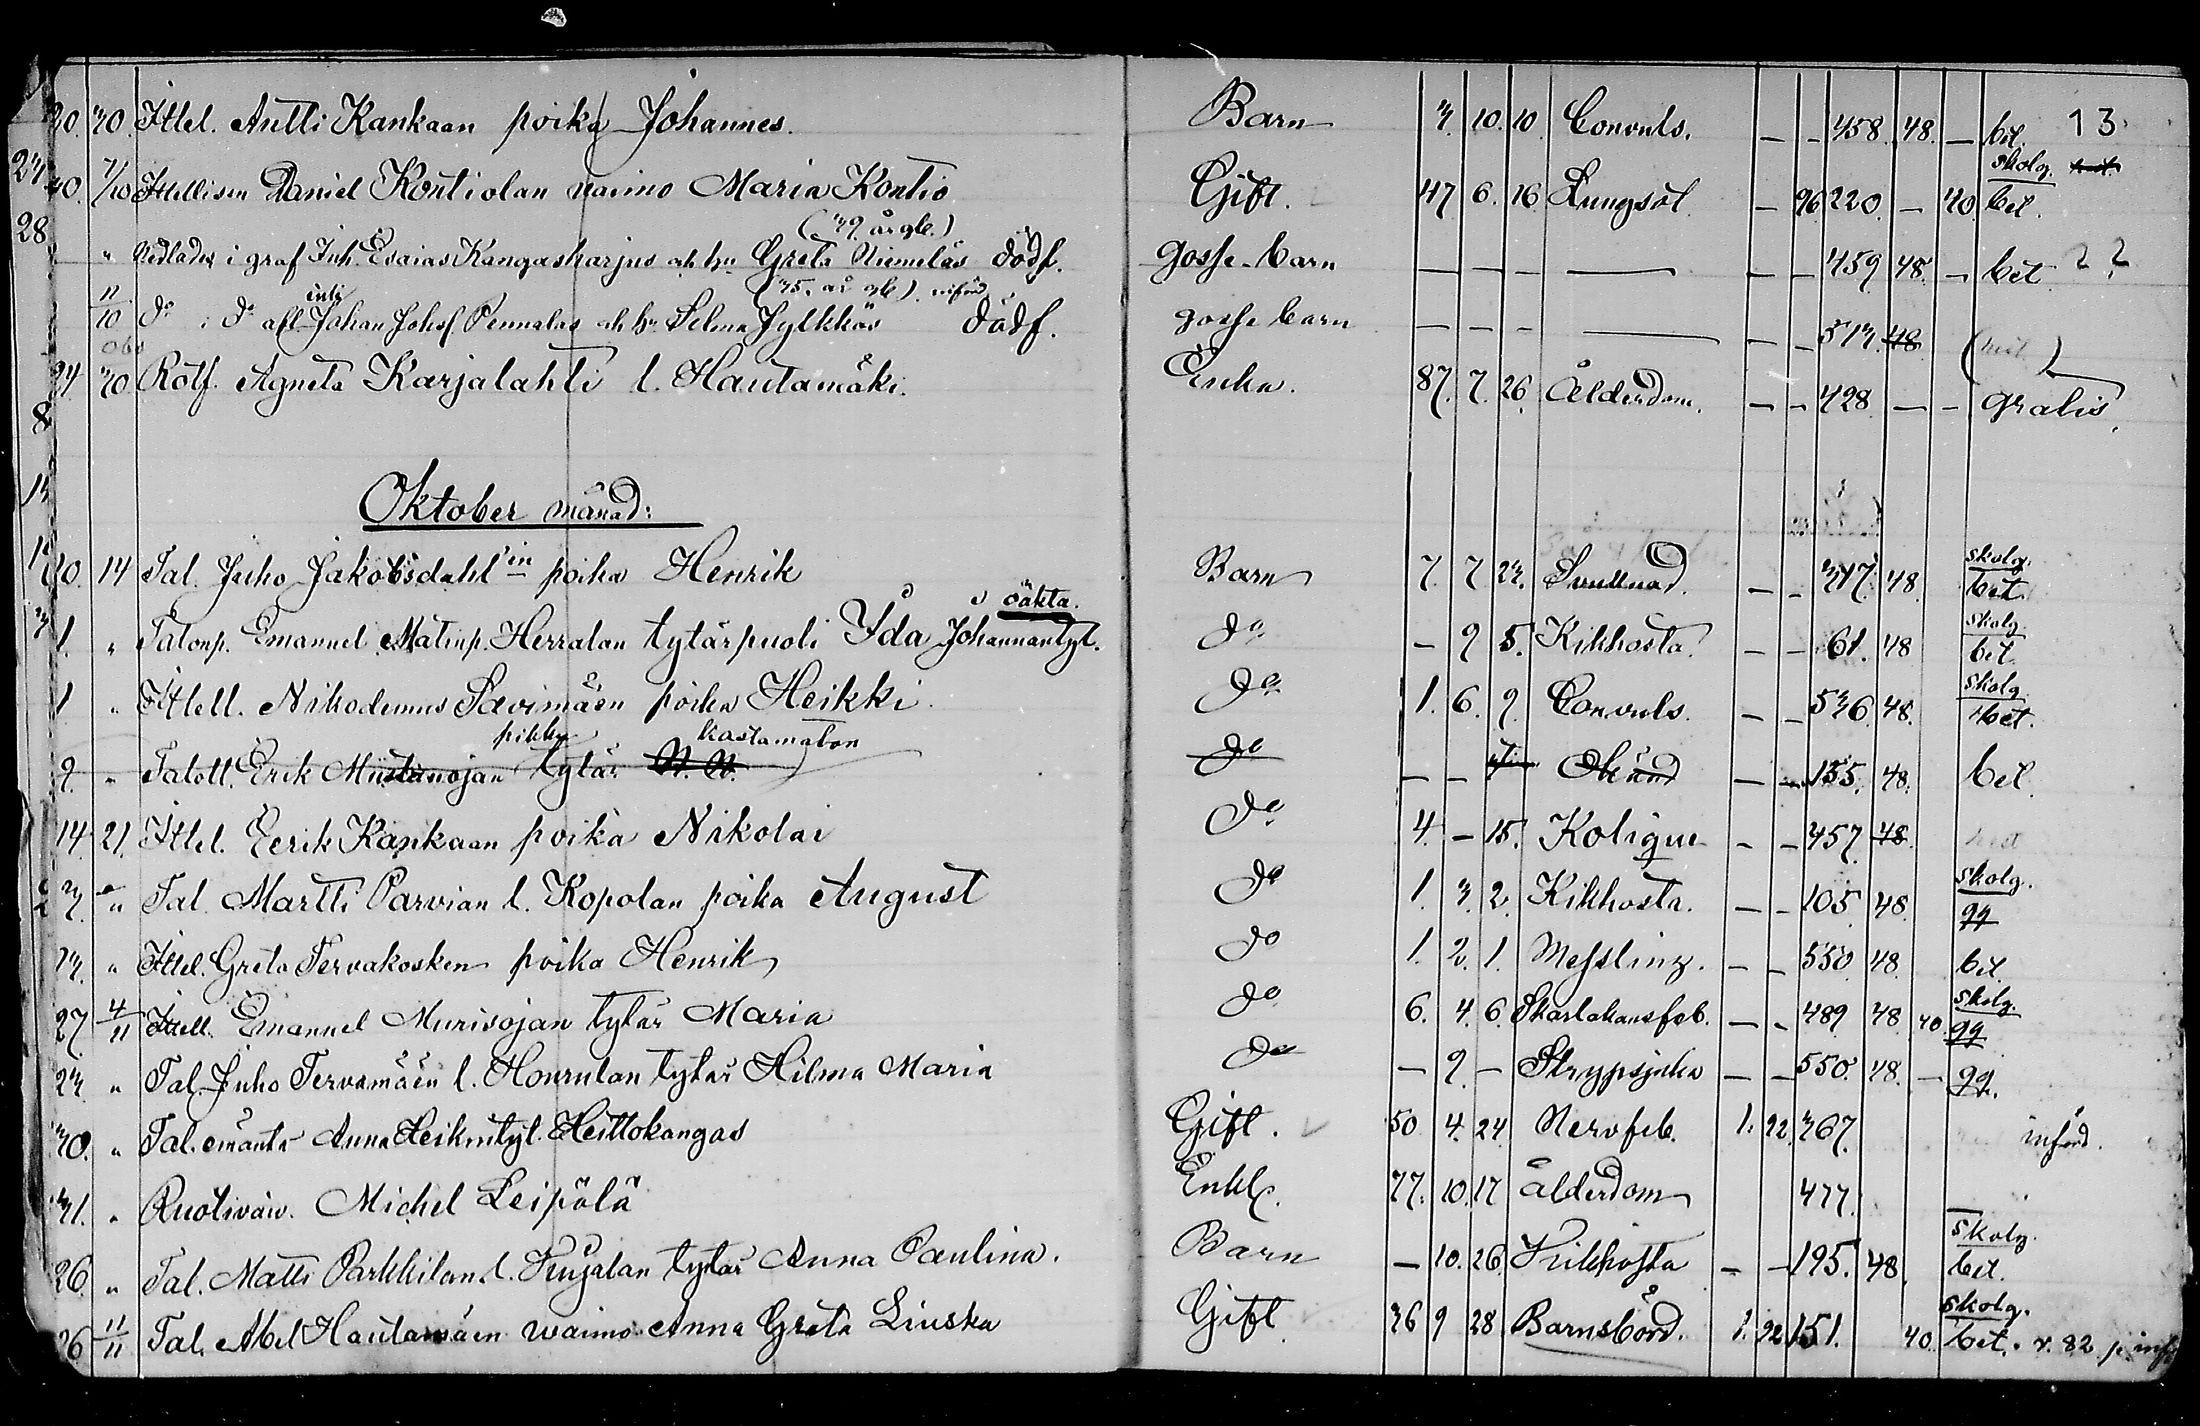 20. 30. Ittel. Antti Kankaan poika Johannes. Barn 3. 10. 10. Convuls. — — 458. 48. — bet. 13
30. 7/10 Itsellisen Daniel Kontiolan vaimo Maria Kontio Gift. 47. 6. 16. Lungsot — 96 220. — 40. skolg. bet.
(39 år gl.)
" Nedlades i graf Inh. Esaias Kangasharjus och h:u Greta Niemeläs dödf. gosse-barn — — — — — — 459 48. — bet 22
(35 år gl.) införd
11/10 d:o i d:o afl. Johan Johsf. Pennalas och h:u Selma Jylkkäs dödf. gosse barn — — — — — — 513. 48
obs
24. 30. Rotf. Agneta Karjalahti l. Hautamäki. Enka. 87. 7. 26. Ålderdom. — — 428 — — gratis.
Oktober månad:
20. 14 Tal. Juho Jakobsdahl'in poika Henrik Barn 7. 7 23. — — 317. 48. skolg. bet.
oäkta.
1. " Talonp. Emanuel Matinp. Herralan tytärpuoli Ida Johannantyt. d:o — 9 5. Kikhosta. — — 61. 48 skolg. bet.
1 " Itsell. Nikodemus Savimäen poika Heikki. d:o 1. 6. 9. Convuls. — — 536. 48. skolg. bet.
pikku kastamaton
9. " Taloll. Erik Mustanojan tytär N. N. d:o — — Okänd — — 155. 48. bet.
14. 21. Ittel. Eerik Kankaan poika Nikolai d:o 4. — 15. Kolique — — 457. 48.
3. " Tal. Martti Parvian l. Kopolan poika August d:o 1. 3. 2. Kikhosta. — — 105. 48. skolg. gg
23. " Ittel. Greta Tervakosken poika Henrik d:o 1. 2. 1. Messling. — — 550 48. bet
27. 4/11 Itsell. Emanuel Murisojan tytär Maria d:o 6. 4. 6. Skarlakansfeb. — — 489 48. 40. skolg. gg
23. " Tal. Juho Tervamäen l. Hourulan tytär Hilma Maria d:o — 9. — Strypsjuka — — 550. 48. — gg.
30. " Tal. emäntä Anna Heikintyt. Heittokangas Gift. 50 4. 24 Nervfeb. 1. 92. 367. införd.
31. " Ruotivaiv. Michel Leipälä Enkl. 77. 10. 17 Ålderdom 477.
26. " Tal. Matti Parkkilan l. Kujalan tytär Anna Paulina. Barn — 10. 26. Kikhosta — — 195. 48. skolg. bet.
26 11/11 Tal. Abel Hautamäen waimo Anna Greta Liuska Gift 36 9 28. Barnsbörd. 1. 92 151. 40. skolg. bet.